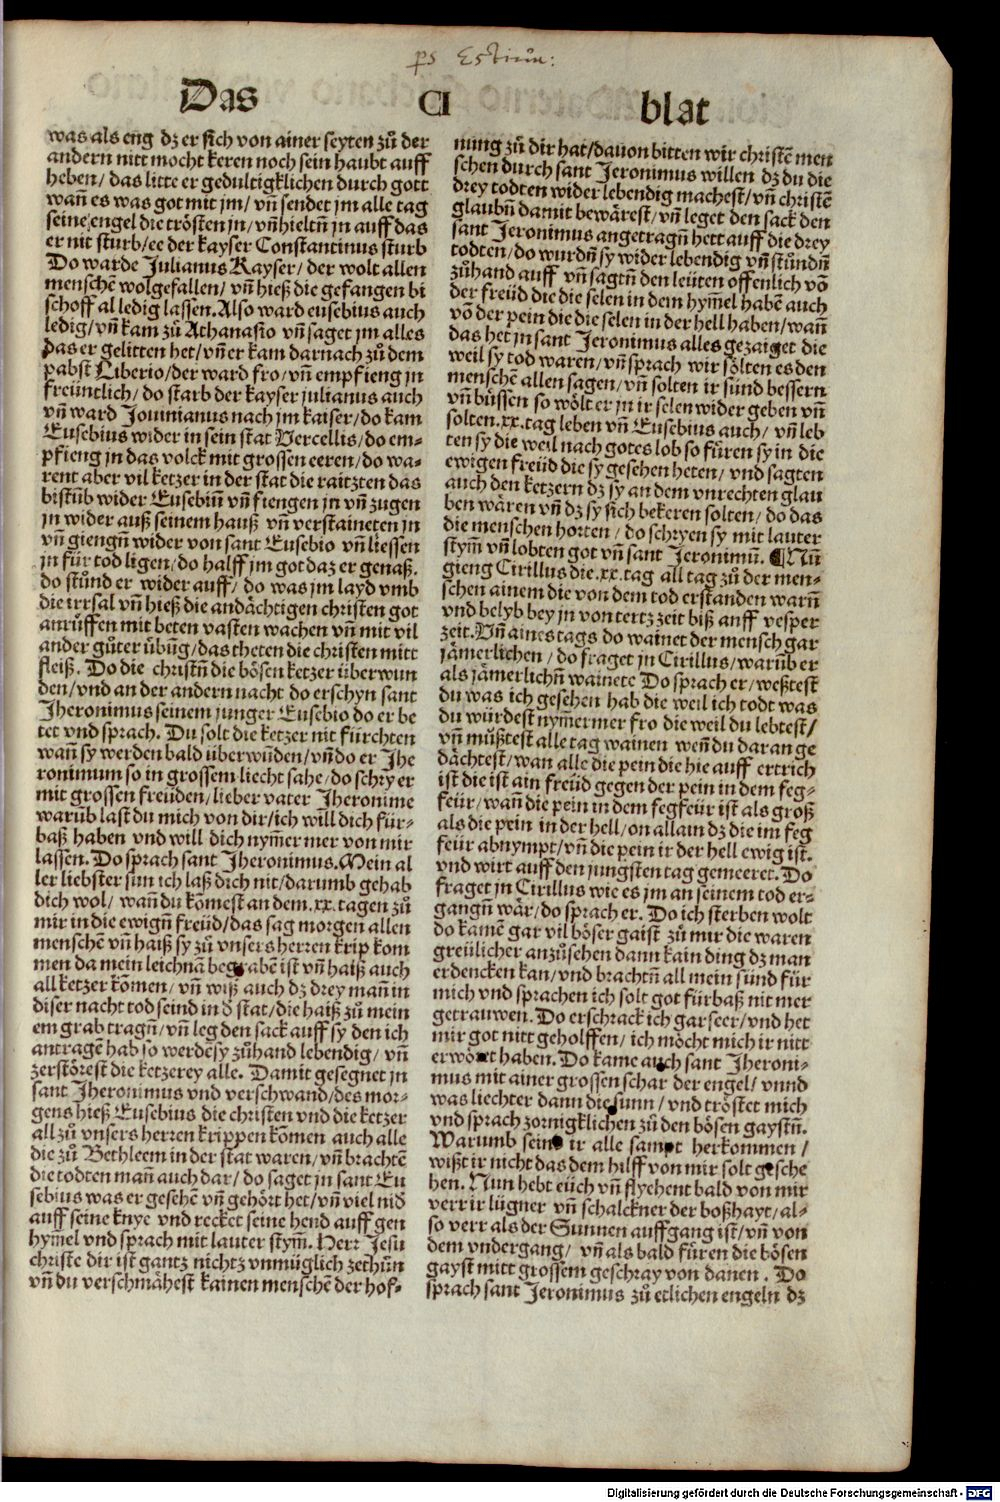 Das CI blat
was als eng dz er sich von ainer seyten zů der
andern nitt mocht keren noch sein haubt auff
heben/ das litte er gedultigklichen durch gott
wañ es was got mit jm/ vñ sendet jm alle tag
seine engel die trösten jn/ vñ hieltñ jn auff das
er nit sturb/ ee der kayser Constantinus sturb
Do warde Julianus Kayser/ der wolt allen
menschē wolgefallen/ vñ hieß die gefangen bi
schoff al ledig lassen. Also ward eusebius auch
ledig/ vñ kam zů Athanasio vñ saget jm alles
das er gelitten het/ vñ er kam darnach zů dem
pabst Liberio/ der ward fro/ vñ empfieng jn
freüntlich/ do starb der kayser julianus auch
vñ ward Jouinianus nach jm kaiser/ do kam
Eusebius wider in sein stat Vercellis/ do em-
pfieng jn das volck mit grossen eeren/ do wa-
rent aber vil ketzer in der stat die raitzten das
bistūb wider Eusebiū vñ fiengen jn vñ zugen
jn wider auß seinem hauß vñ verstaineten jn
vñ giengñ wider von sant Eusebio vñ liessen
jn für tod ligen/ do halff jm got daz er genaß.
do stůnd er wider auff/ do was jm layd vmb
die irrsal vñ hieß die andächtigen christen got
anrůffen mit beten vasten wachen vñ mit vil
ander gůter übūg/ das theten die christen mitt
fleiß. Do die christñ die bösen ketzer überwun
den/ vnd an der andern nacht do erschyn sant
Jheronimus seinem junger Eusebio do er be
tet vnd sprach. Du solt die ketzer nit fürchten
wañ sy werden bald überwūden/ vñ do er Jhe
ronimum so in grossem liecht sahe/ do schry er
mit grossen freüden/ lieber vater Jheronime
warūb last du mich von dir/ ich will dich für-
baß haben vnd will dich nym̄er mer von mir
lassen. Do sprach sant Jheronimus. Mein al
ler liebster sun ich laß dich nit/ darumb gehab
dich wol/ wañ du kōmest an dem .xx. tagen zů
mir in die ewigñ freüd/ das sag morgen allen
menschē vñ haiß sy zů vnsers herren krip kom
men da mein leichnā begrabē ist vñ haiß auch
all ketzer kōmen/ vñ wiß auch dz drey mañ in
diser nacht tod seind in d̄ stat/ die haiß zů mein
em grab tragñ/ vñ leg den sack auff sy den ich
antragē hab so werdē sy zůhand lebendig/ vñ
zerstörest die ketzerey alle. Damit gesegnet jn
sant Jheronimus vnd verschwand/ des mor-
gens hieß Eusebius die christen vnd die ketzer
all zů vnsers herren krippen kōmen auch alle
die zů Bethleem in der stat waren/ vñ brachtē
die todten mañ auch dar/ do saget jn sant Eu
sebius was er gesehē vñ gehört het/ vñ viel nid̄
auff seine knye vnd recket seine hend auff gen
hym̄el vnd sprach mit lauter stym̄. Herr Jesu
christe dir ist gantz nichtz vnmüglich zethūn
vñ du verschmähest kainen menschē der hof-
nung zů dir hat/ dauon bitten wir christē men
schen durch sant Jeronimus willen dz du die
drey todten wider lebendig machest/ vñ christē
glaubñ damit bewärest/ vñ leget den sack den
sant Jeronimus angetragñ hett auff die drey
todten/ do wurdñ sy wider lebendig vñ stůndñ
zůhand auff vñ sagtñ den leüten offenlich vō
der freüd die die selen in dem hym̄el habē auch
vō der pein die die selen in der hell haben/ wañ
das het jn sant Jeronimus alles gezaiget die
weil sy tod waren/ vñ sprach wir sölten es den
menschē allen sagen/ vñ solten ir sünd bessern
vñ büssen so wölt er jn ir selen wider geben vñ
solten .xx. tag leben vñ Eusebius auch/ vñ leb
ten sy die weil nach gotes lob so füren sy in die
ewigen freüd die sy gesehen heten/ vnd sagten
auch den ketzern dz sy an dem vnrechten glau
ben wären vñ dz sy sich bekeren solten/ do das
die menschen horten/ do schryen sy mit lauter
stym̄ vñ lobten got vñ sant Jeronimū. ¶Nū
gieng Cirillus die .xx. tag all tag zů der men-
schen ainem die von dem tod erstanden warñ
vnd belyb bey jn von tertz zeit biß anff vesper
zeit. Vñ aines tags do wainet der mensch gar
jämerlichen/ do fraget jn Cirillus/ warūb er
als jämerlichñ wainete Do sprach er/ weßtest
du was ich gesehen hab die weil ich todt was
du würdest nym̄ermer fro die weil du lebtest/
vñ můßtest alle tag wainen weñ du daran ge
dächtest/ wan alle die pein die hie auff ertrich
ist die ist ain freüd gegen der pein in dem feg-
feür/ wañ die pein in dem fegfeür ist als groß
als die pein in der hell/ on allain dz die im feg
feür abnympt/ vñ die pein ir der hell ewig ist.
vnd wirt auff den jungsten tag gemeeret. Do
fraget jn Cirillus wie es jm an seinem tod er-
gangñ wär/ do sprach er. Do ich sterben wolt
do kamē gar vil böser gaist zů mir die waren
greülicher anzůsehen dann kain ding dz man
erdencken kan/ vnd brachtñ all mein sünd für
mich vnd sprachen ich solt got fürbaß nit mer
getrauwen. Do erschrack ich gar seer/ vnd het
mir got nitt geholffen/ ich möcht mich ir nitt
erwört haben. Do kame auch sant Jheroni-
mus mit ainer grossen schar der engel/ vnnd
was liechter dann die sunn/ vnd tröstet mich
vnd sprach zornigklichen zů den bösen gaystñ.
Warumb seind ir alle sampt herkommen/
wißt ir nicht das dem hilff von mir solt gesche
hen. Nun hebt eüch vñ flyehent bald von mir
verr ir lügner vñ schalckner der boßhayt/ al-
so verr als der Sunnen auffgang ist/ vñ von
dem vndergang/ vñ als bald füren die bösen
gayst mitt grossem geschray von danen. Do
sprach sant Jeronimus zů etlichen engeln dz
Digitalisierung gefördert durch die Deutsche Forschungsgemeinschaft - DFG